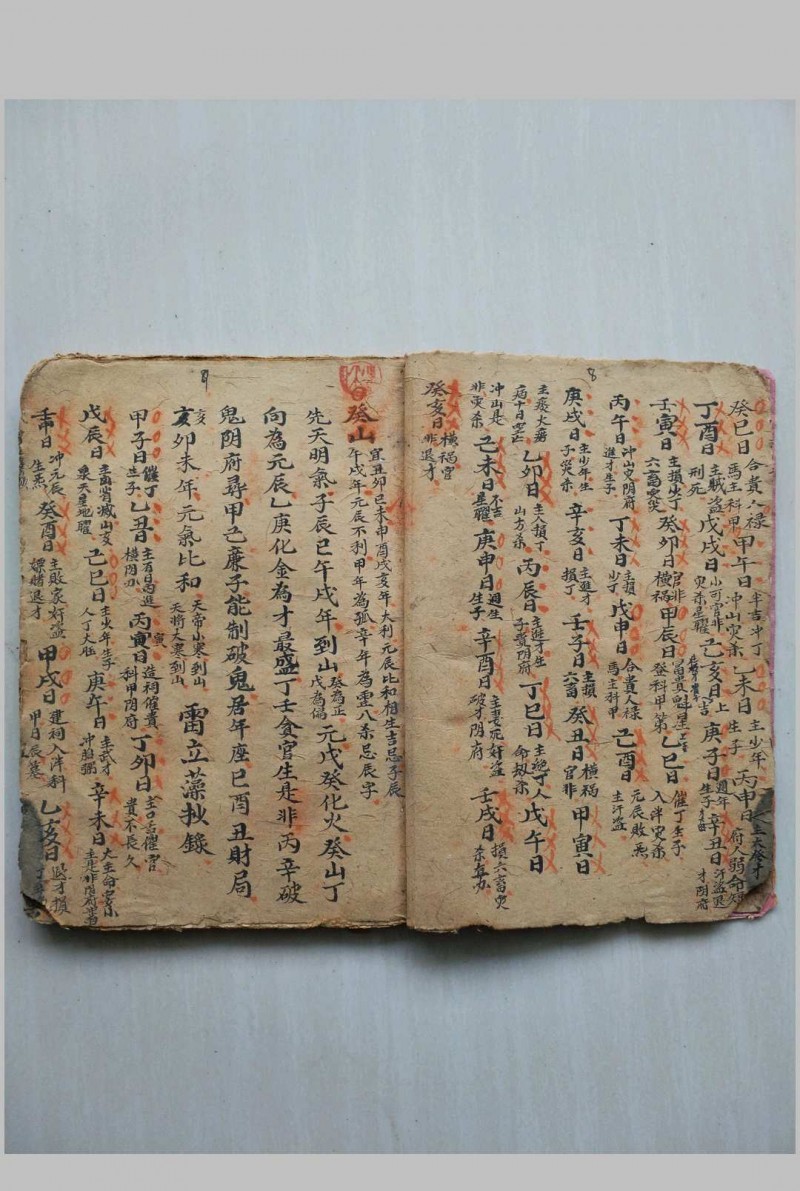 8
癸巳日 合貴人祿馬主科甲 甲午日 半吉冲丁冲山灾杀 乙未日 主少年生子 丙申日
丁酉日 主賊盗刑死 戊戌日 小可官非灾杀星曜 己亥日 上吉 庚子日 週年生子 辛丑日 汗盗退才阴府
壬寅日 主損丁六畜灾 癸卯日 官非横禍 甲辰日 富貴魁星登科甲第 乙巳日 催丁生子入泮灾杀
丙午日 冲山灾阴府進才生子 丁未日 主損少丁 戊申日 合貴人禄馬主科甲 己酉日 元辰敗羔主汗盗
庚戌日 主少年生子灾杀 辛亥日 主進才損丁 壬子日 主損六畜 癸丑日 横禍官非 甲寅日
主瘦火病日空亡 乙卯日 主人損丁山方杀 丙辰日 主進才生子貴阴府 丁巳日 主絕丁人命劫杀 戊午日
冲山是非灾杀 己未日 不吉星曜 庚申日 週生生子 辛酉日 主妻死奸盗破才阴府 壬戌日 損六畜灾
癸亥日 横禍官非退才
9
癸山 寅丑卯巳未申酉戌亥年大利元辰比和相生吉忌子辰午戌年元辰不利甲年為孤辛年為虛八杀忌辰字
先天明氣子辰巳午戌年到山 癸為正戊為偏 元戊癸化火癸山丁
向為元辰乙庚化金為才最盛丁壬貪官生是非丙辛破
鬼阴府尋甲己廉子能制破鬼居年座巳酉丑財局
亥卯未年元氣比和 天帝小寒到山天將大寒到山 雷立藻抄錄
甲子日 催丁生子 乙丑日 丙寅日 造祠催貴科甲阴府 丁卯日 主口舌催官貴不長久
戊辰日 己巳日 主少年生子人丁大旺 庚午日 主武才 辛未日
壬申日 冲元辰生羔 癸酉日 主敗家奸盗嫖賭退才 甲戌日 建祠入泮科甲日辰墓 乙亥日 退才損